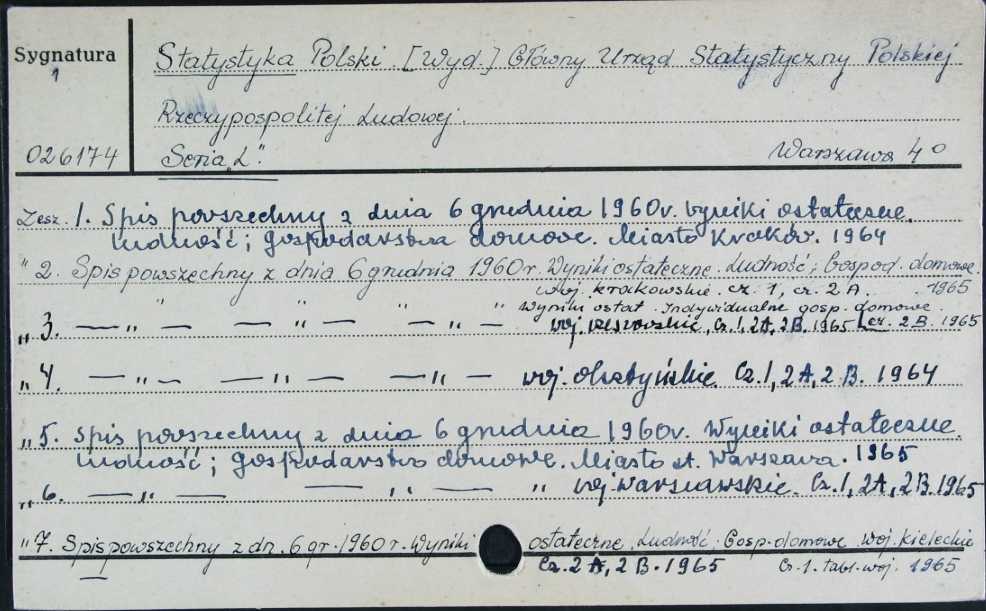 Sygnatura
1
Statystyka Polski. [Wyd.] Główny Urząd Statystyczny Polskiej
Rzeczypospolitej Ludowej.
026174 Seria „L". Warszawa 4°
Zesz. 1. Spis powszechny z dnia 6 grudnia 1960r. Wyniki ostateczne.
Ludność; gospodarstwa domowe. Miasto Kraków. 1964
" 2. Spis powszechny z dnia 6 grudnia 1960 r. Wyniki ostateczne. Ludność; Gospod. domowe.
Woj. krakowskie. cz. 1, cz. 2A. 1965
" " " " Wyniki ostat. Indywidualne gosp. domowe.
„ 3. — „ — — " — — " — woj. rzeszowskie, Cz. 1, 2A, 2B. 1965 [cz. 2B. 1965
„ 4. — " — — " — — " — woj. olsztyńskie Cz. 1, 2A, 2B. 1964
„ 5. Spis powszechny z dnia 6 grudnia 1960r. Wyniki ostateczne.
Ludność; gospodarstwa domowe. Miasto st. Warszawa. 1965
„ 6. — „ — — „ — " woj. warszawskie. Cz. 1, 2A, 2B. 1965
" 7. Spis powszechny z dn. 6 gr. 1960 r. Wyniki ostateczne. Ludność. Gosp. domowe woj. kieleckie
Cz. 2A, 2B. 1965 Cz. 1. tabl. woj. 1965